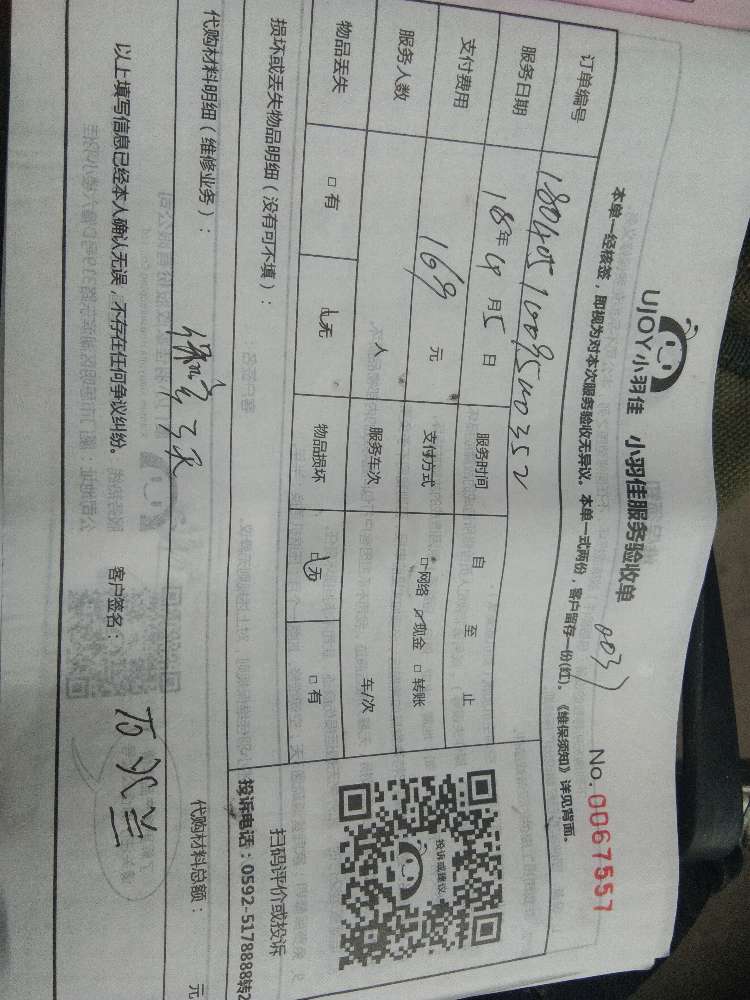 UJOY小羽佳 小羽佳服务验收单
No.0067557
本单一经核签，即视为对本次服务验收无异议。本单一式两份，客户留存一份(红)。《维保须知》详见背面。
订单编号
服务日期 18年4月5日 服务时间 自 至 止
支付费用 169元 支付方式 □网络 ☑现金 □转账
服务人数 人 服务车次 车/次
物品丢失 □有 ☑无 物品损坏 ☑无 □有
投诉或建议
扫码评价或投诉
投诉电话：0592-5178888转2
损坏或丢失物品明细（没有可不填）：
代购材料明细（维修业务）： 代购材料总额： 元
以上填写信息已经本人确认无误，不存在任何争议纠纷。 客户签名：